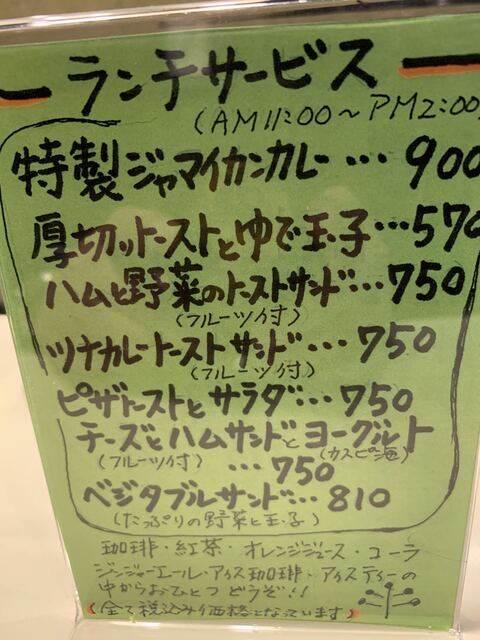 ランチサービス
(AM11:00～PM2:00)
特製ジャマイカンカレー…900
厚切りトーストとゆで玉子…570
ハムと野菜のトーストサンド…750
(フルーツ付)
ツナカレートーストサンド…750
(フルーツ付)
ピザトーストとサラダ…750
チーズとハムサンドとヨーグルト
(フルーツ付) (カスピ海)
…750
ベジタブルサンド…810
(たっぷりの野菜と玉子)
珈琲・紅茶・オレンジジュース・コーラ
ジンジャーエール・アイス珈琲・アイスティーの
中からおひとつどうぞ!!
(全て税込み価格となっています)